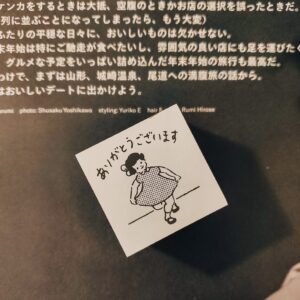 ケンカをするときは大抵、空腹のときかお店の選択を誤ったときだ。
列に並ぶことになってしまったら、もう大変）
ふたりの平穏な日々に、おいしいものは欠かせない。
年末年始は特にご馳走が食べたいし、雰囲気の良い店にも足を運びた
グルメな予定をいっぱい詰め込んだ年末年始の旅行も最高だ。
わけで、まずは山形、城崎温泉、尾道への満腹旅の話から。
はおいしいデートに出かけよう。
photo: Shosaku Yoshikawa styling: Yuriko E hair & Rumi Hirose
ありがとうございます